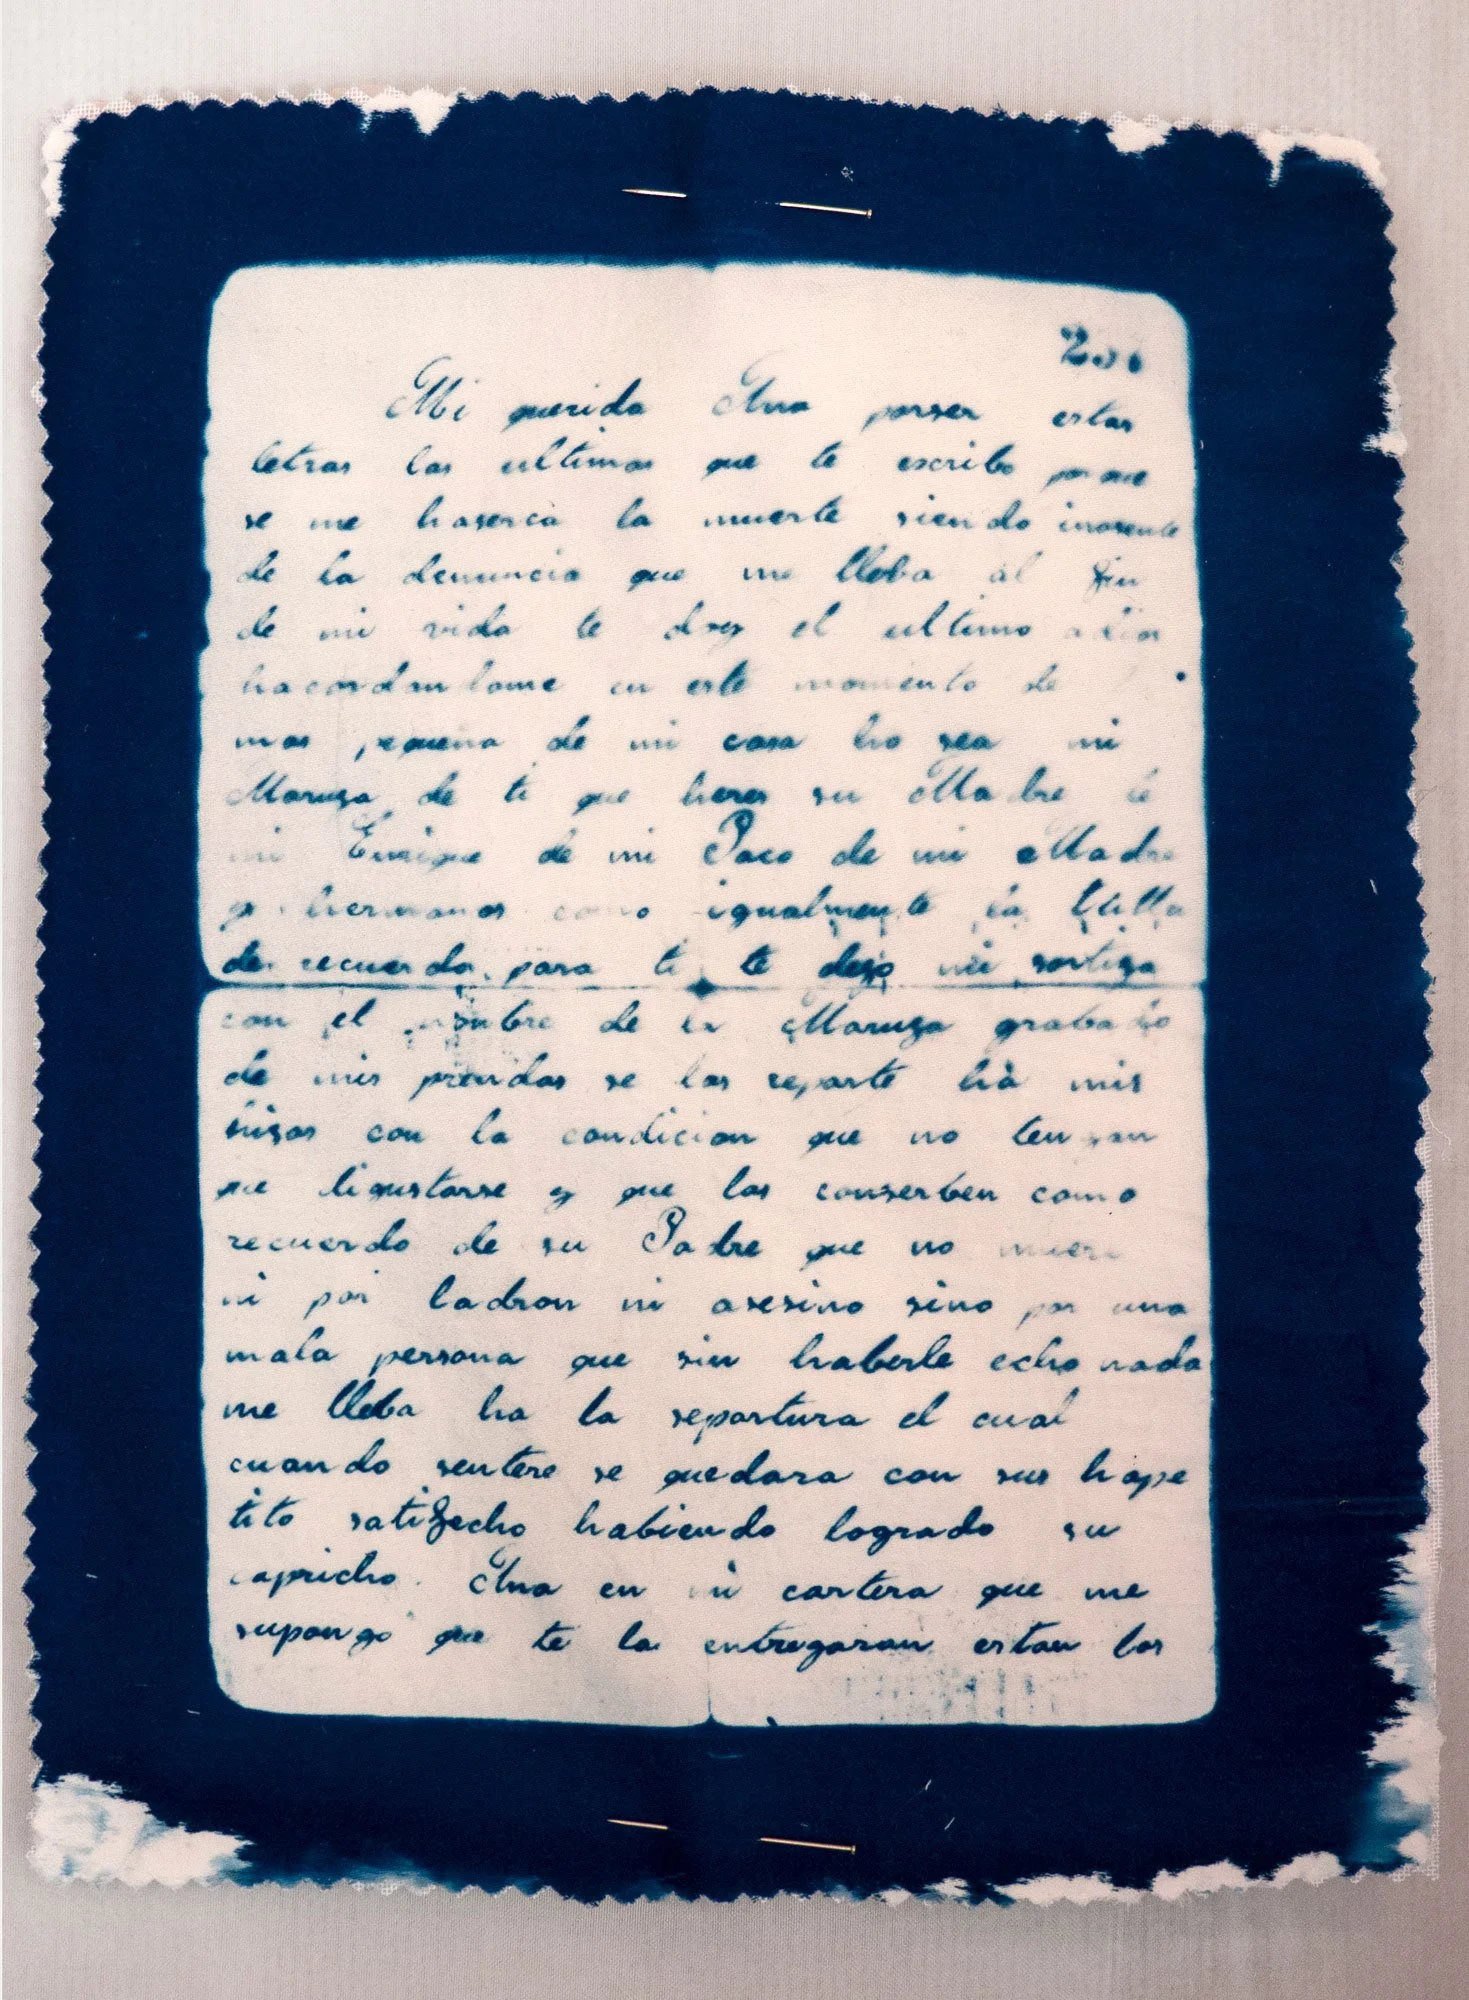 Mi querida Ana por ser estas
letras las ultimas que te escribo porque
se me haserca la muerte siendo inosente
de la denuncia que me lleba al fin
de mi vida te doy el ultimo adios
hacordandome en este momento de
mas pequeña de mi casa ho sea mi
Maruja de ti que heres su Madre de
mi Enrique de mi Paco de mi Madre
y hermanos como igualmente la
de recuerdo para ti te dejo mi sortija
con el nombre de la Maruja grabado
de mis prendas se las reparte há mis
hijos con la condicion que no tengan
que digustarse y que las conserben como
recuerdo de su Padre que no muere
ni por ladron ni asesino sino por una
mala persona que sin haberle echo nada
me lleba ha la seportura el cual
cuando sentere se quedara con sus hape
tito satifecho habiendo logrado su
capricho. Ana en mi cartera que me
supongo que te la entregaran estan las